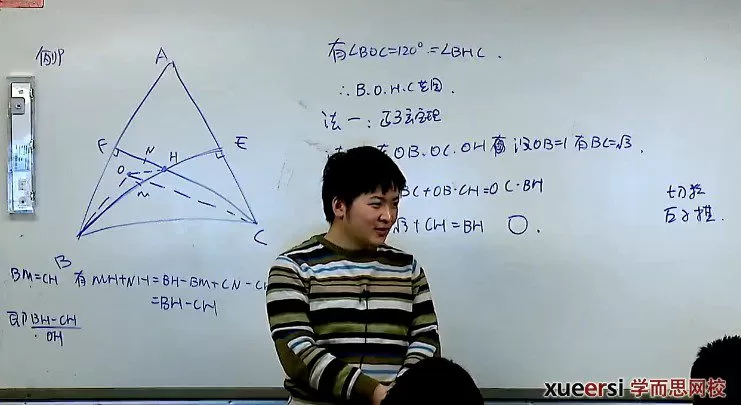 例
A
F
E
N
H
O
M
B
C
BM=CH 有 MH+NH=BH-BM+CN-CH
=BH-CH
即 BH-CH
OH
有∠BOC=120°=∠BHC.
∴B.O.H.C共圆.
法一:
OB.OC.OH 有 设OB=1 有BC=√3.
BC+OB·CH=OC·BH
√3+CH=BH
xueersi 学而思网校